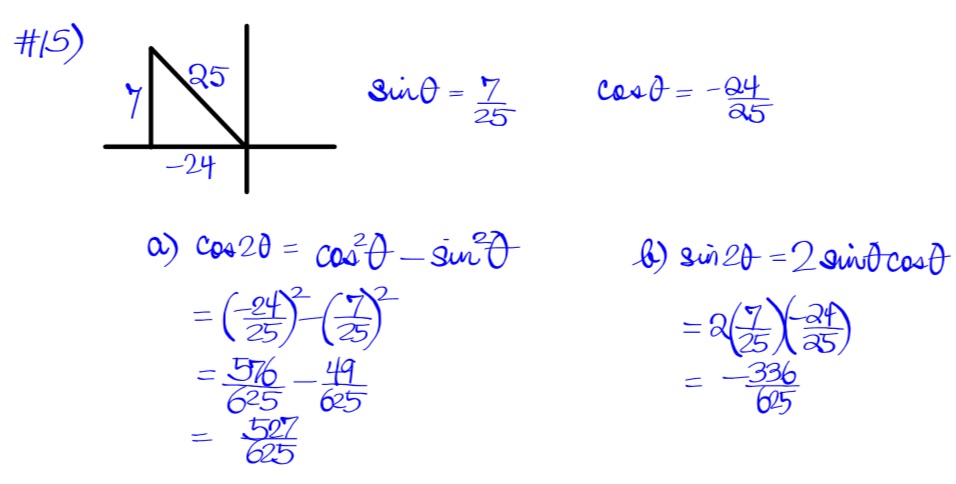 #15)
7
25
-24
sinθ = 7/25
cosθ = -24/25
a) cos2θ = cos²θ - sin²θ
= (-24/25)² - (7/25)²
= 576/625 - 49/625
= 527/625
b) sin2θ = 2sinθcosθ
= 2(7/25)(-24/25)
= -336/625